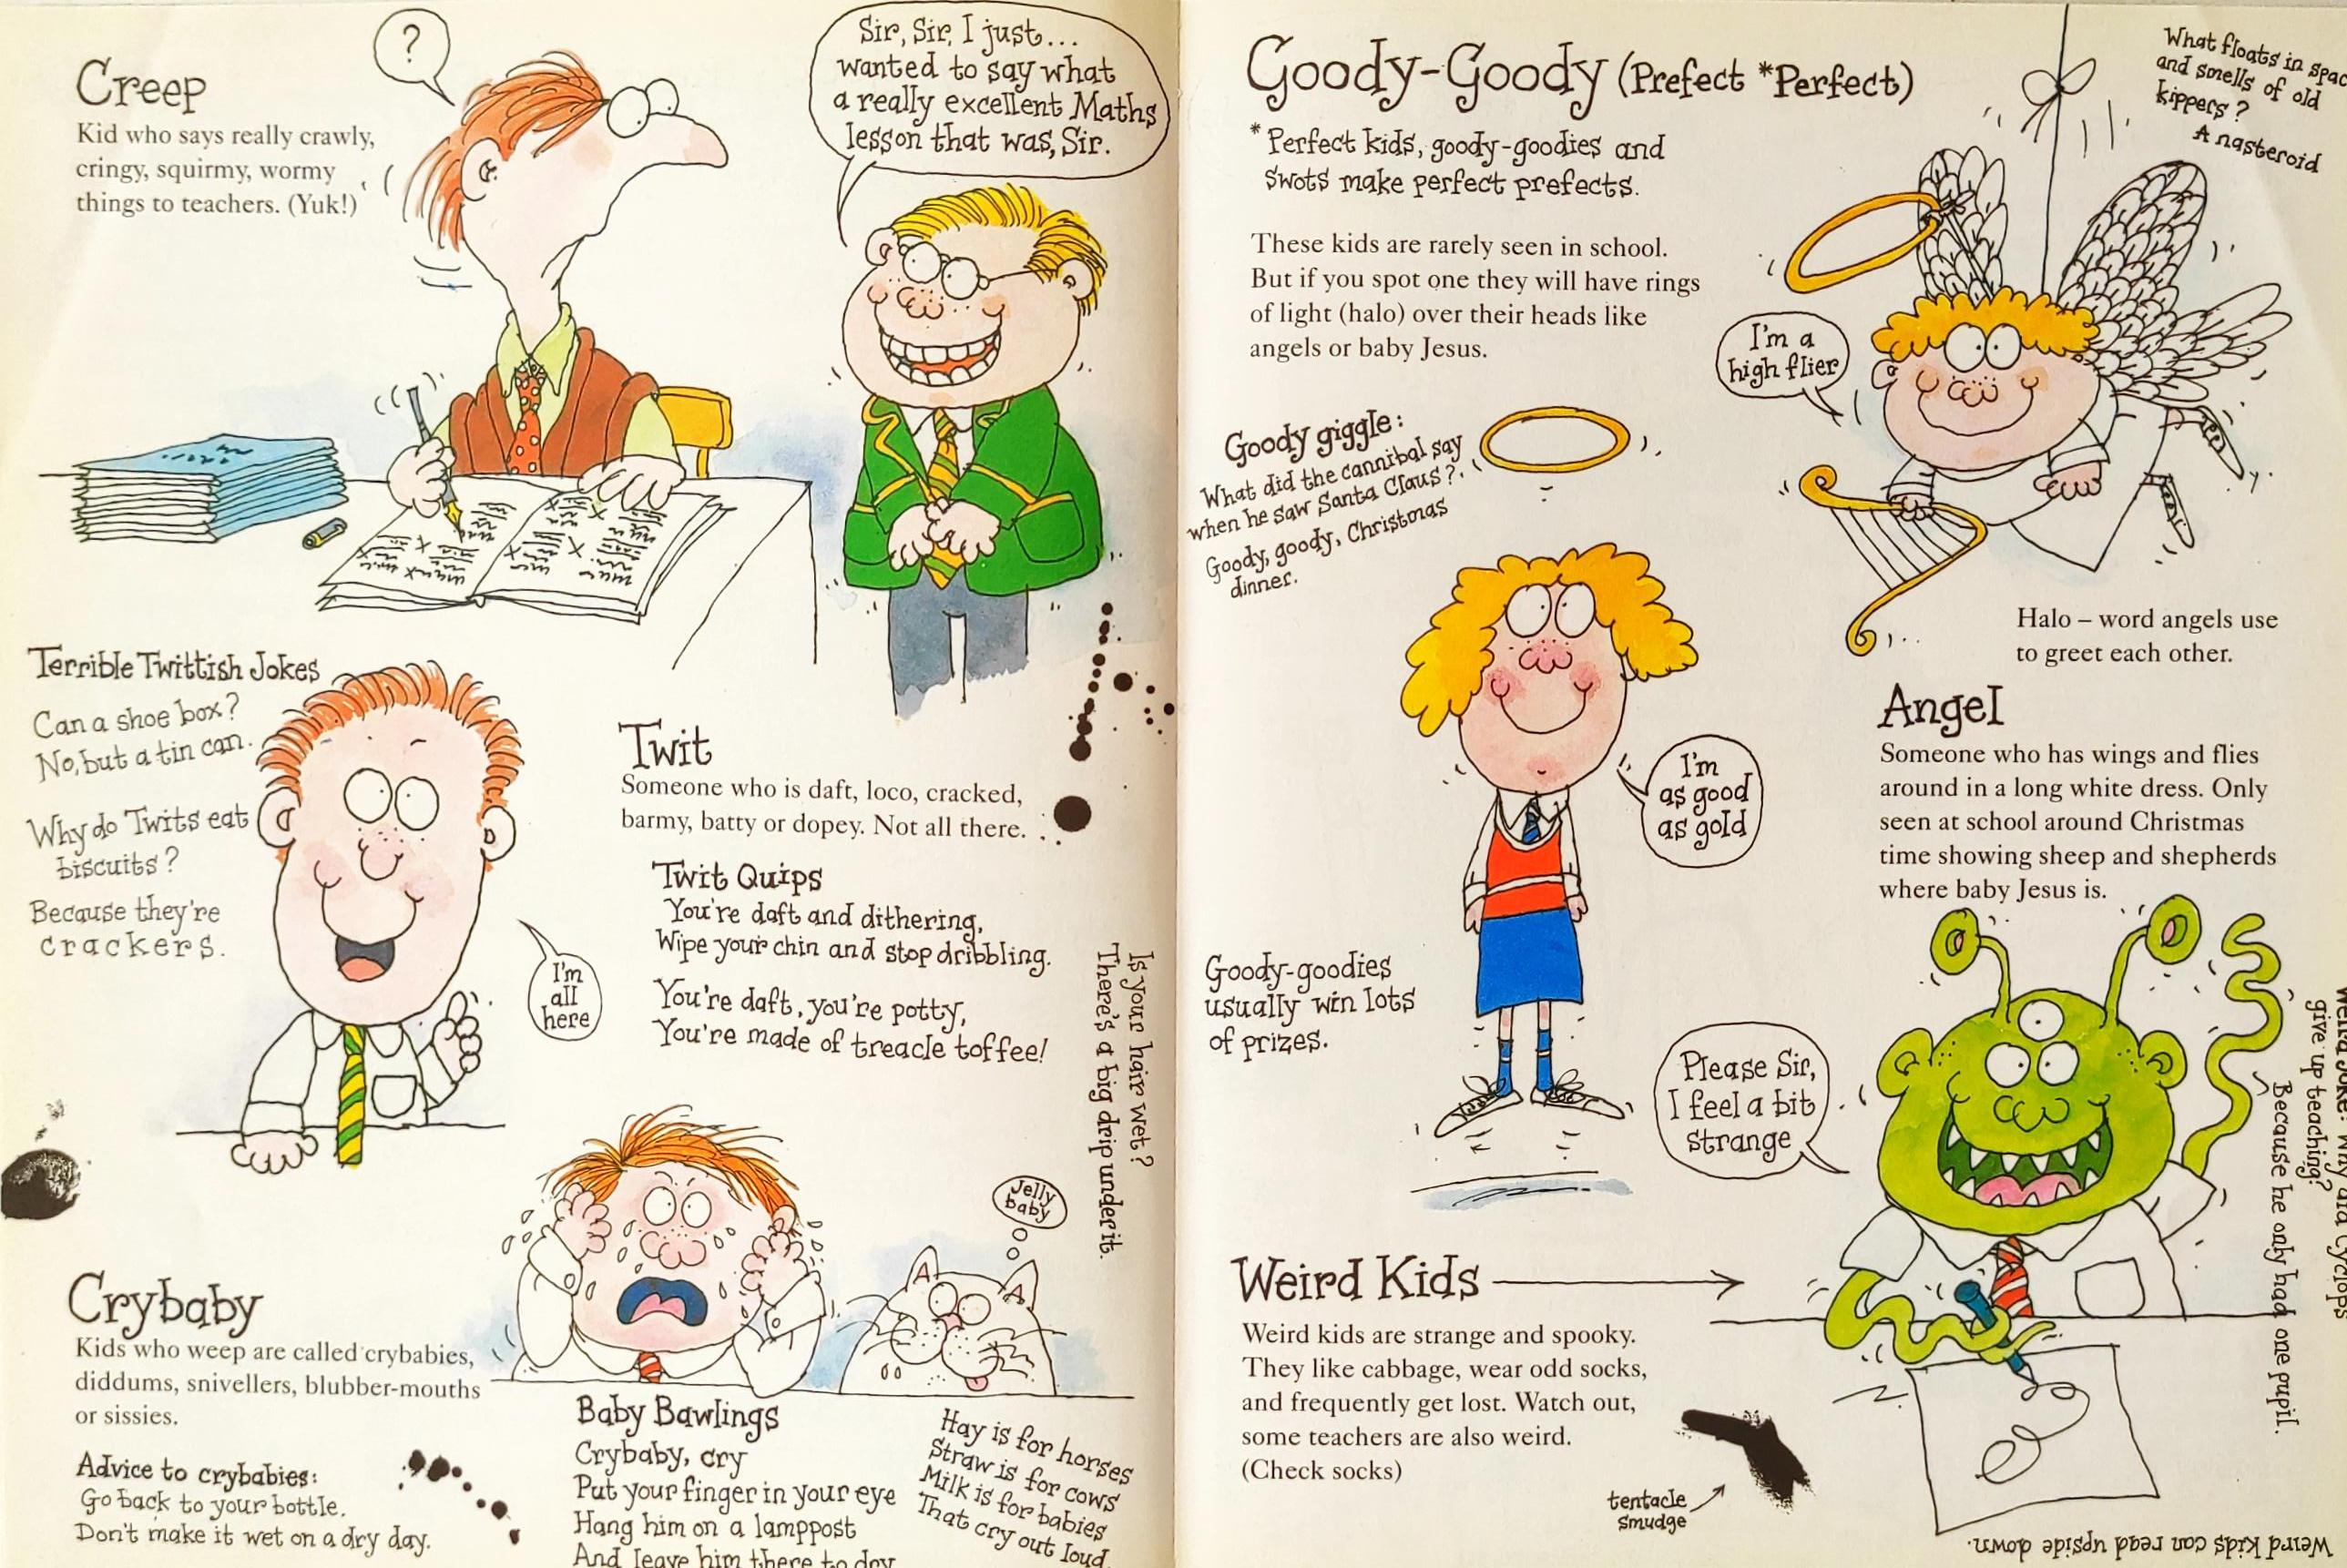 Creep
Kid who says really crawly,
cringy, squirmy, wormy
things to teachers. (Yuk!)
?
Sir, Sir, I just...
wanted to say what
a really excellent Maths
lesson that was, Sir.
Terrible Twittish Jokes
Can a shoe box?
No, but a tin can.
Why do Twits eat
biscuits?
Because they're
crackers.
I'm
all
here
Twit
Someone who is daft, loco, cracked,
barmy, batty or dopey. Not all there.
Twit Quips
You're daft and dithering,
Wipe your chin and stop dribbling.
You're daft, you're potty,
You're made of treacle toffee!
Is your hair wet?
There's a big drip under it.
Crybaby
Kids who weep are called crybabies,
diddums, snivellers, blubber-mouths
or sissies.
Advice to crybabies:
Go back to your bottle.
Don't make it wet on a dry day.
Jelly
baby
Baby Bawlings
Crybaby, cry
Put your finger in your eye
Hang him on a lamppost
And leave him there to dry
Hay is for horses
Straw is for cows
Milk is for babies
That cry out loud
Goody-Goody (Prefect *Perfect)
*Perfect kids, goody-goodies and
swots make perfect prefects.
These kids are rarely seen in school.
But if you spot one they will have rings
of light (halo) over their heads like
angels or baby Jesus.
What floats in spac
and smells of old
kippers?
A nasteroid
I'm a
high flier
Goody giggle:
What did the cannibal say
when he saw Santa Claus?
Goody, goody, Christmas
dinner.
Halo – word angels use
to greet each other.
I'm
as good
as gold
Goody-goodies
usually win lots
of prizes.
Angel
Someone who has wings and flies
around in a long white dress. Only
seen at school around Christmas
time showing sheep and shepherds
where baby Jesus is.
Please Sir,
I feel a bit
strange
Weird Joke: Why did Cyclops
give up teaching?
Because he only had one pupil.
Weird Kids
Weird kids are strange and spooky.
They like cabbage, wear odd socks,
and frequently get lost. Watch out,
some teachers are also weird.
(Check socks)
tentacle
smudge
Weird Kids can read upside down.